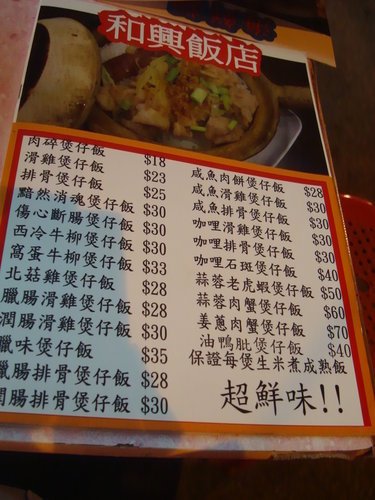 和興飯店
肉碎煲仔飯 $18
滑雞煲仔飯 $23
排骨煲仔飯 $25
黯然消魂煲仔飯 $30
傷心斷腸煲仔飯 $30
西冷牛柳煲仔飯 $30
窩蛋牛柳煲仔飯 $33
北菇雞煲仔飯 $28
臘腸滑雞煲仔飯 $28
潤腸滑雞煲仔飯 $30
臘味煲仔飯 $35
臘腸排骨煲仔飯 $28
潤腸排骨煲仔飯 $30
咸魚肉餅煲仔飯 $28
咸魚滑雞煲仔飯 $30
咸魚排骨煲仔飯 $30
咖哩滑雞煲仔飯 $30
咖哩排骨煲仔飯 $30
咖哩石斑煲仔飯 $40
蒜蓉老虎蝦煲仔飯 $50
蒜蓉肉蟹煲仔飯 $60
姜蔥肉蟹煲仔飯 $70
油鴨髀煲仔飯 $40
保證每煲生米煮成熟飯
超鮮味!!